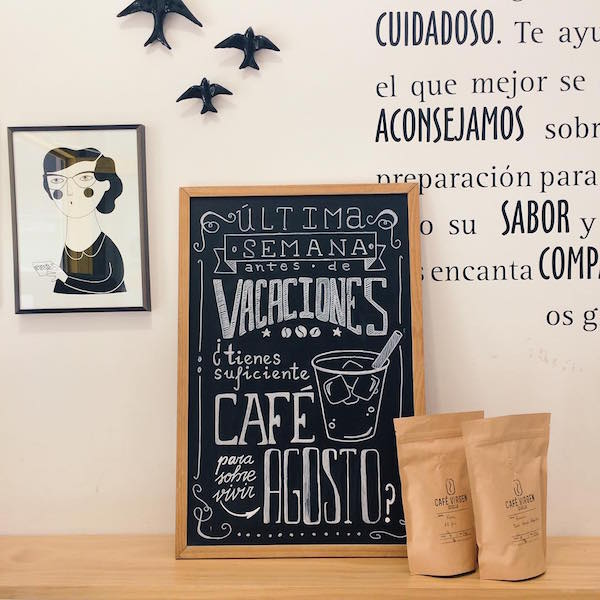 CUIDADOSO. Te ayu
el que mejor se
ACONSEJAMOS sobr
preparación para
o su SABOR y
encanta COMPA
os g
ÚLTIMA
SEMANA
antes · de
VACACIONES
¿tienes
suficiente
CAFÉ
para
sobre
vivir
AGOSTO?
CAFÉ VIRGEN
CAFÉ VIRGEN